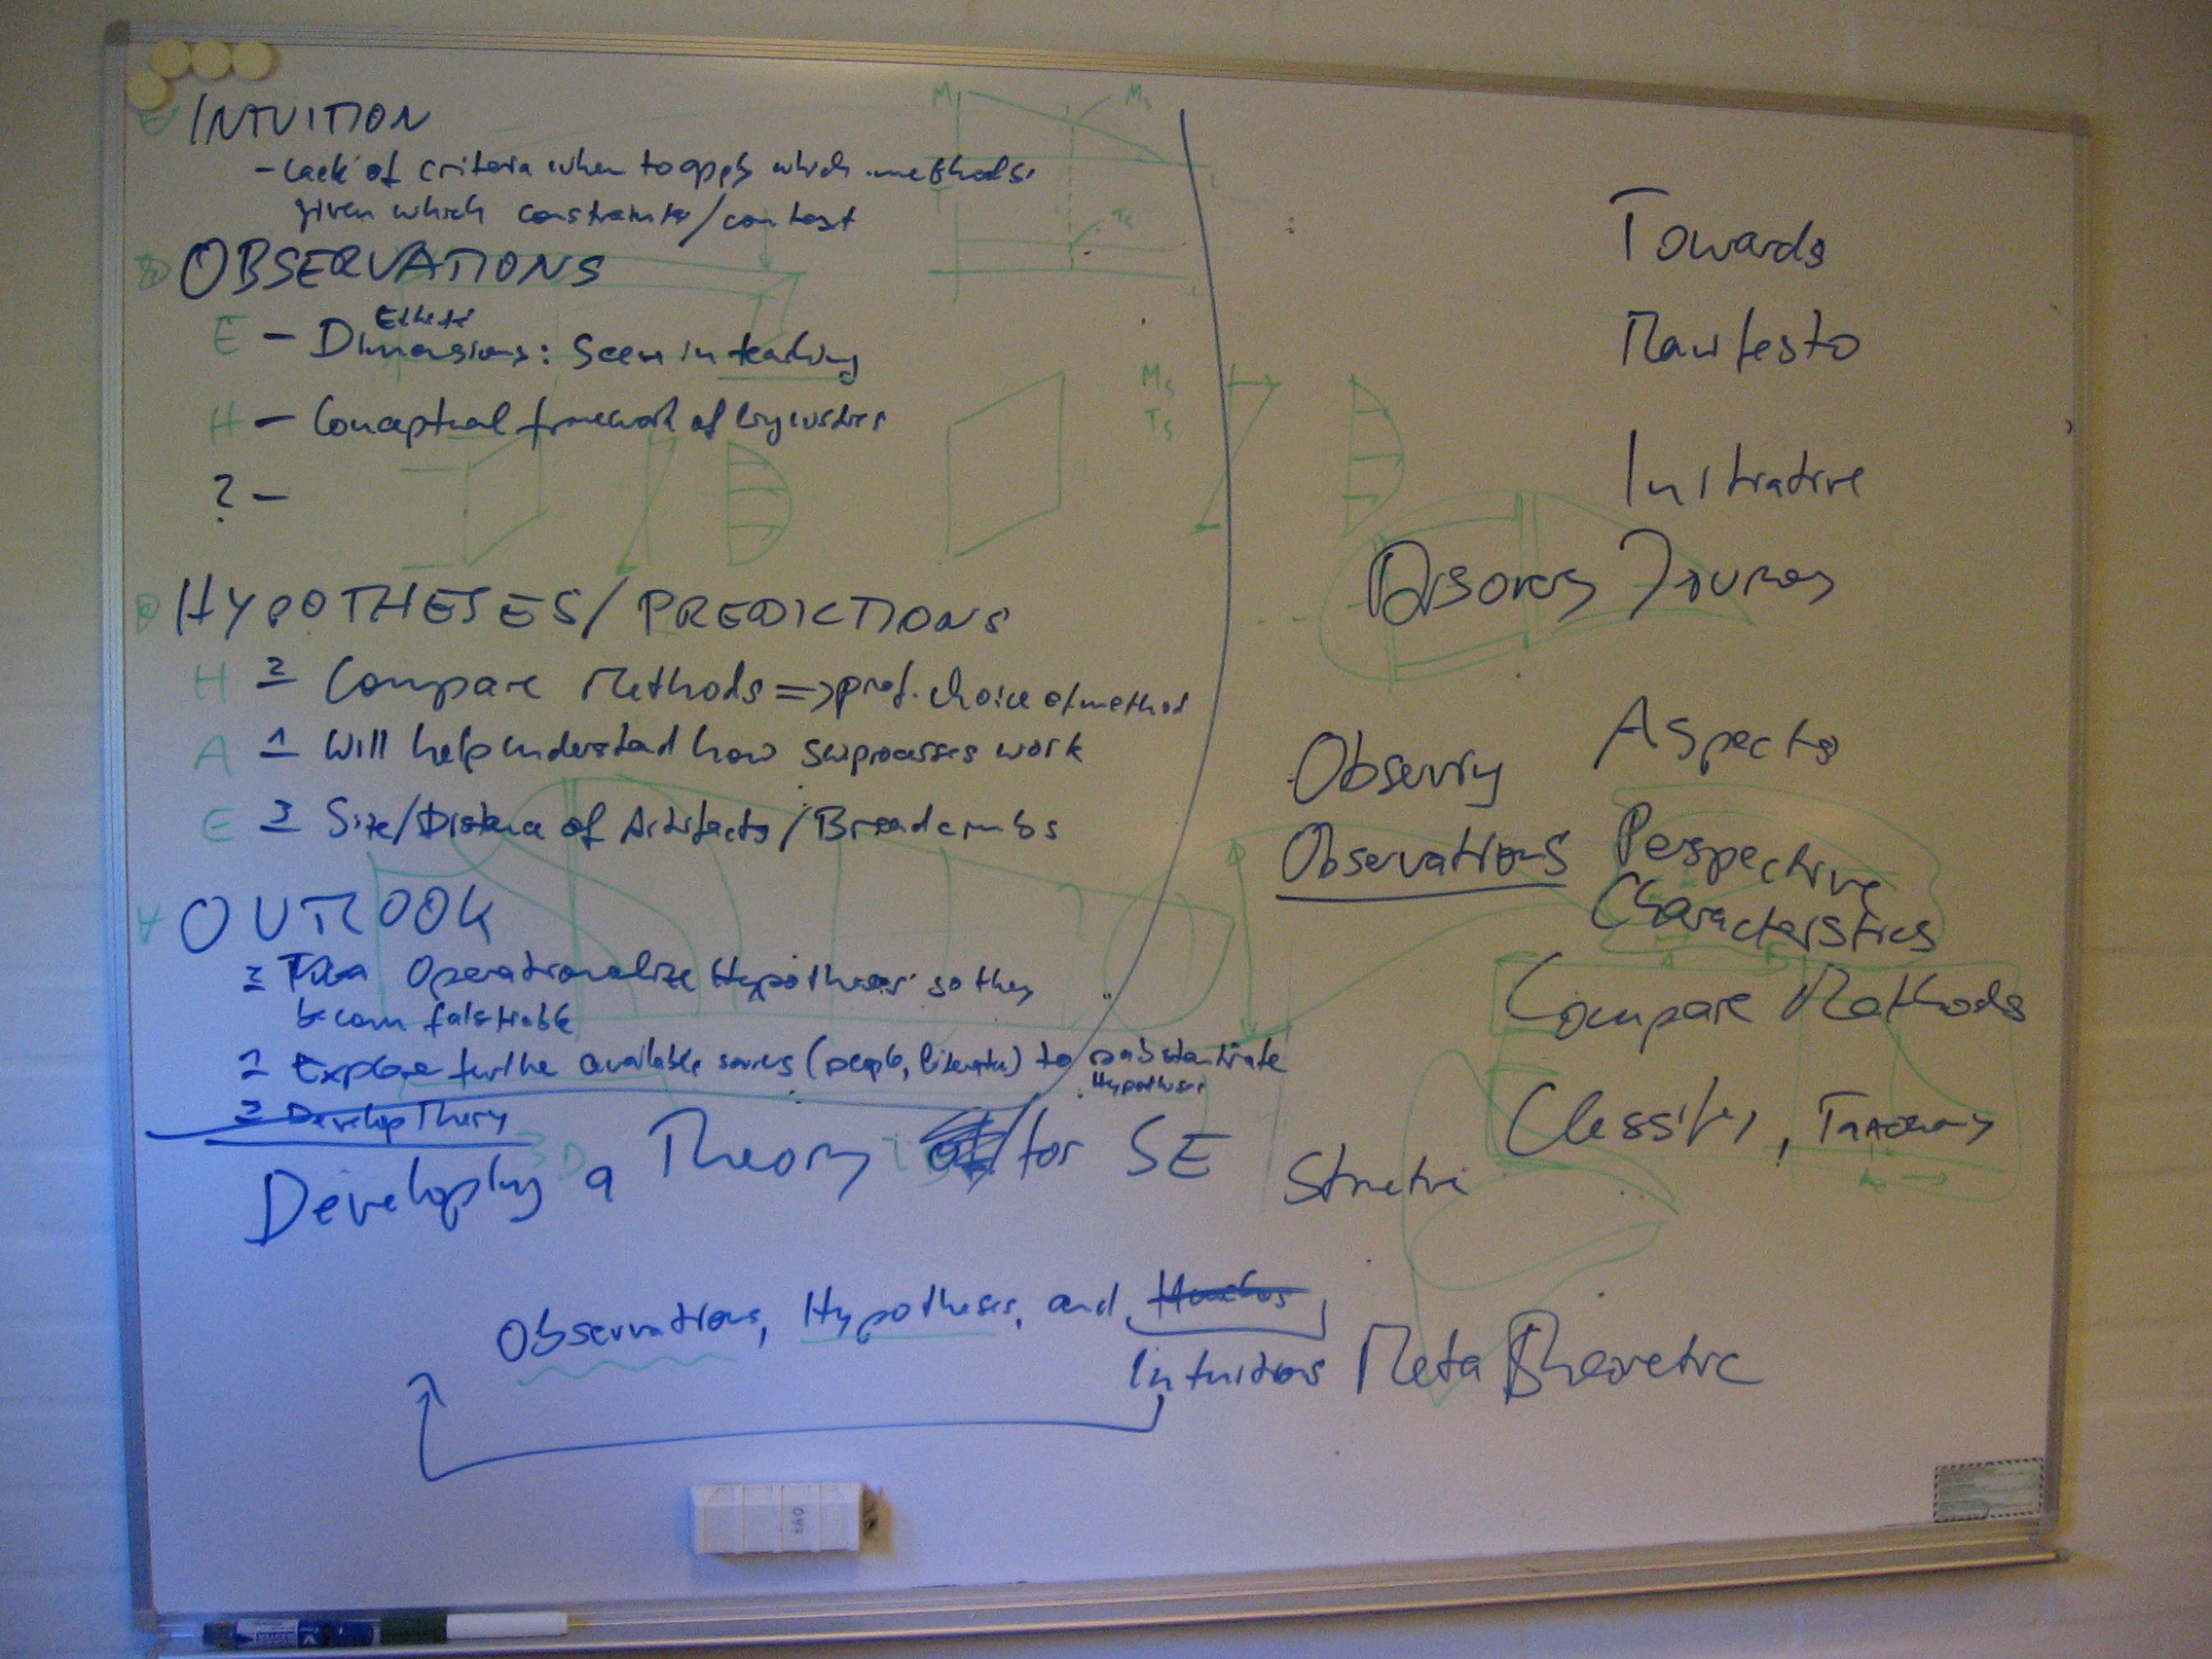 INTUITION
- Lack of criteria when to apply which methods
given which constraints/context
OBSERVATIONS
E - Dimensions: Seen in teaching
H - Conceptual framework of linguistics
? -
HYPOTHESES/PREDICTIONS
H 2 Compare Methods => prof. choice of method
A 1 Will help understand how subprocesses work
E 3 Size/Distance of Artifacts/Breadcrumbs
OUTLOOK
2 Operationalize Hypotheses so they
become falsifiable
1 Explore further available sources (people, literature) to substantiate
Hypotheses
3 Develop Theory
Developing a Theory for SE
Observations, Hypotheses, and
Intuitions
Towards
Manifesto
Initiative
Discovery Journey
Observing
Observations
Aspects
Perspective
Characteristics
Compare Methods
Classify, Taxonomy
Meta Theoretic
M Ms
T Ts
Ms
Ts